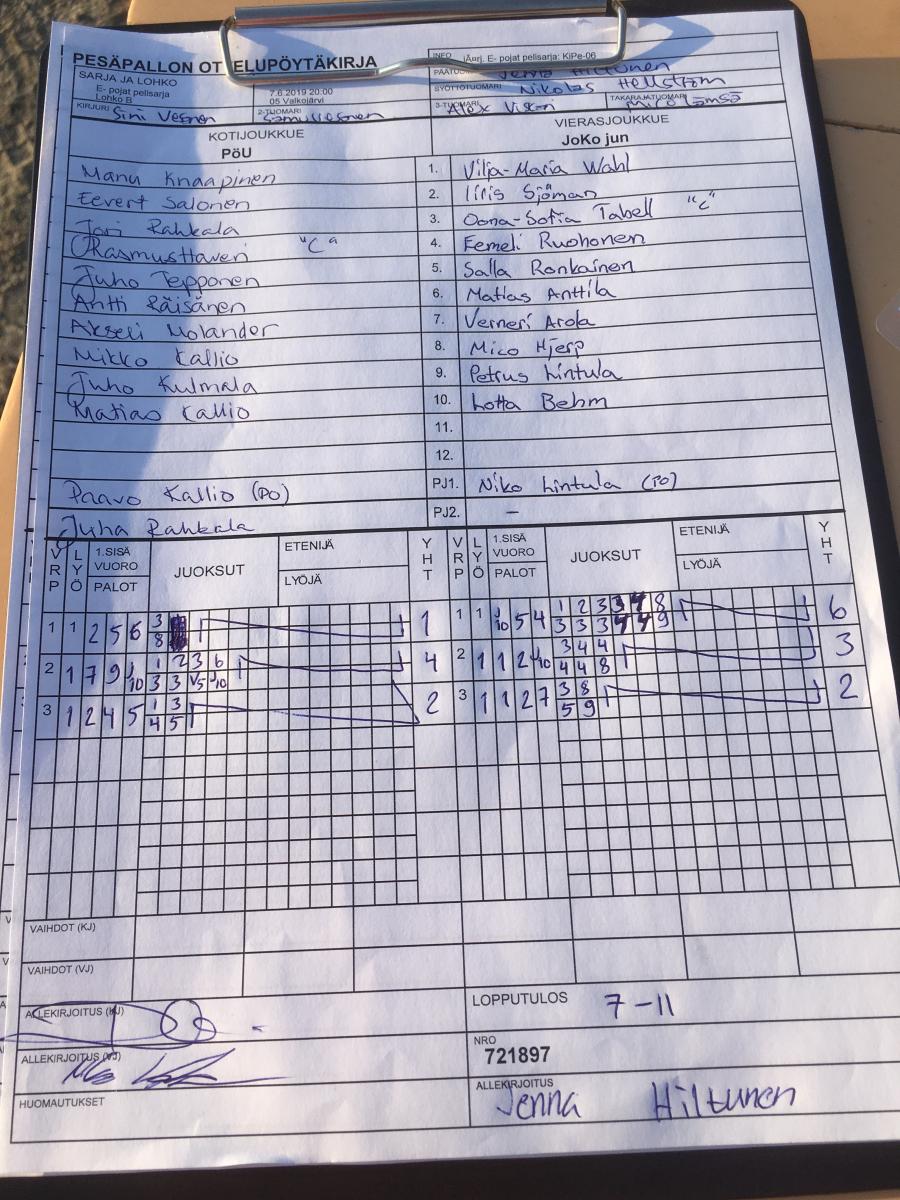 PESÄPALLON OT ELUPÖYTÄKIRJA
INFO jÄurj. E- pojat pelisarja: KiPe-06
SARJA JA LOHKO
E- pojat pelisarja
Lohko B
7.6.2019 20:00
05 Valkojärvi
Jenna Hiltunen
SYÖTTÖTUOMARI Nikolas Hellström
KIRJURI Sini Vesnen
2-TUOMARI
3-TUOMARI Alex
TAKARAJATUOMARI
KOTIJOUKKUE VIERASJOUKKUE
PöU JoKo jun
Manu Knaapinen 1. Vilja-Maria Wahl
Eevert Salonen 2. Iiris Sjöman
Jori Rahkala 3. Oona-Sofia Tabell "C"
Rasmus Haveri "C" 4. Eemeli Ruohonen
Juho Tepponen 5. Salla Ronkainen
Antti Räisänen 6. Matias Anttila
Akseli Molander 7. Verneri Arola
Mikko Kallio 8. Mico Hjerp
Juho Kulmala 9. Petrus Lintula
Matias Kallio 10. Lotta Behm
11.
12.
Paavo Kallio (PO) PJ1. Niko Lintula (PO)
Juha Rahkala PJ2. –
VRP LYÖ 1.SISÄ VUORO PALOT JUOKSUT ETENIJÄ LYÖJÄ YHT VRP LYÖ 1.SISÄ VUORO PALOT JUOKSUT ETENIJÄ LYÖJÄ YHT
1 1 2 5 6 3 1 1 1 J10 5 4 1 2 3 3 4 8 6
8 3 3 3 4 4 9
2 1 7 9 J10 1 2 3 6 4 2 1 1 2 J10 3 4 4 3
3 3 V5 J10 4 4 8
3 1 2 4 5 1 3 2 3 1 1 2 7 3 8 2
4 5 5 9
VAIHDOT (KJ)
VAIHDOT (VJ)
ALLEKIRJOITUS (KJ)
LOPPUTULOS 7-11
ALLEKIRJOITUS (VJ)
NRO
721897
HUOMAUTUKSET
ALLEKIRJOITUS
Jenna Hiltunen